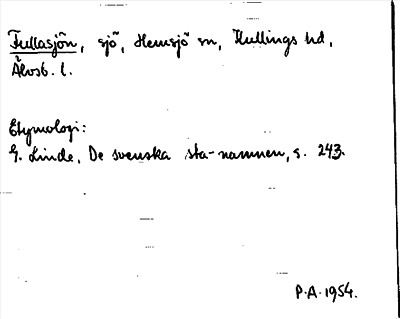 Fullasjön, sjö, Hemsjö sn, Kullings hd,
Älvsb. l.
Etymologi:
G. Linde, De svenska sta-namnen, s. 243.
P.A. 1954.